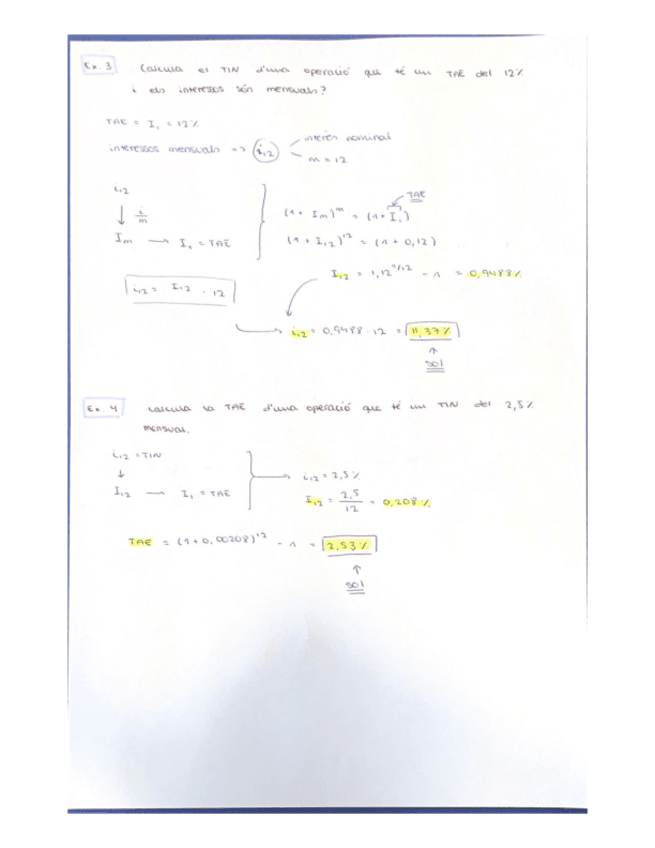 Ex. 3 Calcula el TIN d'una operació que té un TAE del 12%
i els interessos són mensuals?
TAE = I₁ = 12%
interessos mensuals => i₁₂
interès nominal
m = 12
i₁₂
↓ i/m
Iₘ → I₁ = TAE
TAE
(1 + Iₘ)ᵐ = (1 + I₁)
(1 + I₁₂)¹² = (1 + 0,12)
I₁₂ = 1,12^1/12 - 1 = 0,9488%
i₁₂ = I₁₂ · 12
i₁₂ = 0,9488 · 12 = 11,37%
↑
sol
Ex. 4 Calcula la TAE d'una operació que té un TIN del 2,5%
mensual.
i₁₂ = TIN
↓
I₁₂ → I₁ = TAE
i₁₂ = 2,5%
I₁₂ = 2,5/12 = 0,208%
TAE = (1 + 0,00208)¹² - 1 = 2,53%
↑
sol